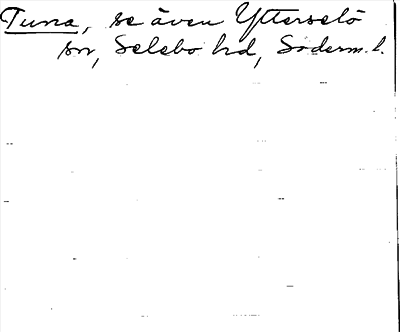 Tuna, se även Ytterselö
sn, Selebo hd, Söderm. l.